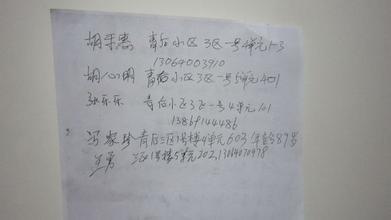 胡 青后小区3区一号4单元1-3
13064003910
胡心明 青后小区3区一号5单元401
张乐乐 青后小区3区一号4单元101
13869144486
冯家珍 青后三区1号楼4单元603 年龄89岁
三区1号楼5单元202,13064070978